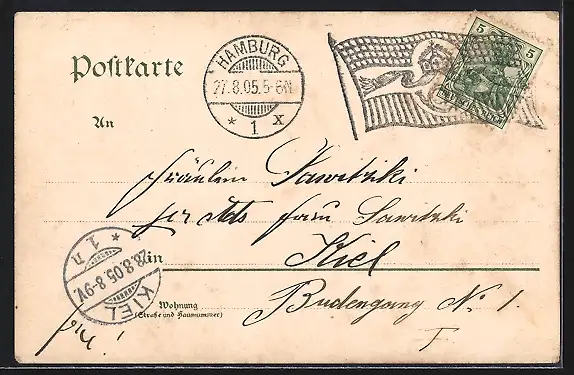 Postkarte
HAMBURG
27.8.05.5-6N
* 1 x
5 5
An
Fräulein Sawitzki
Frau Sawitzki
in Kiel
KIEL
28.8.05.8-9V.
* 1. n
Wohnung
(Straße und Hausnummer)
Budengang No 1.